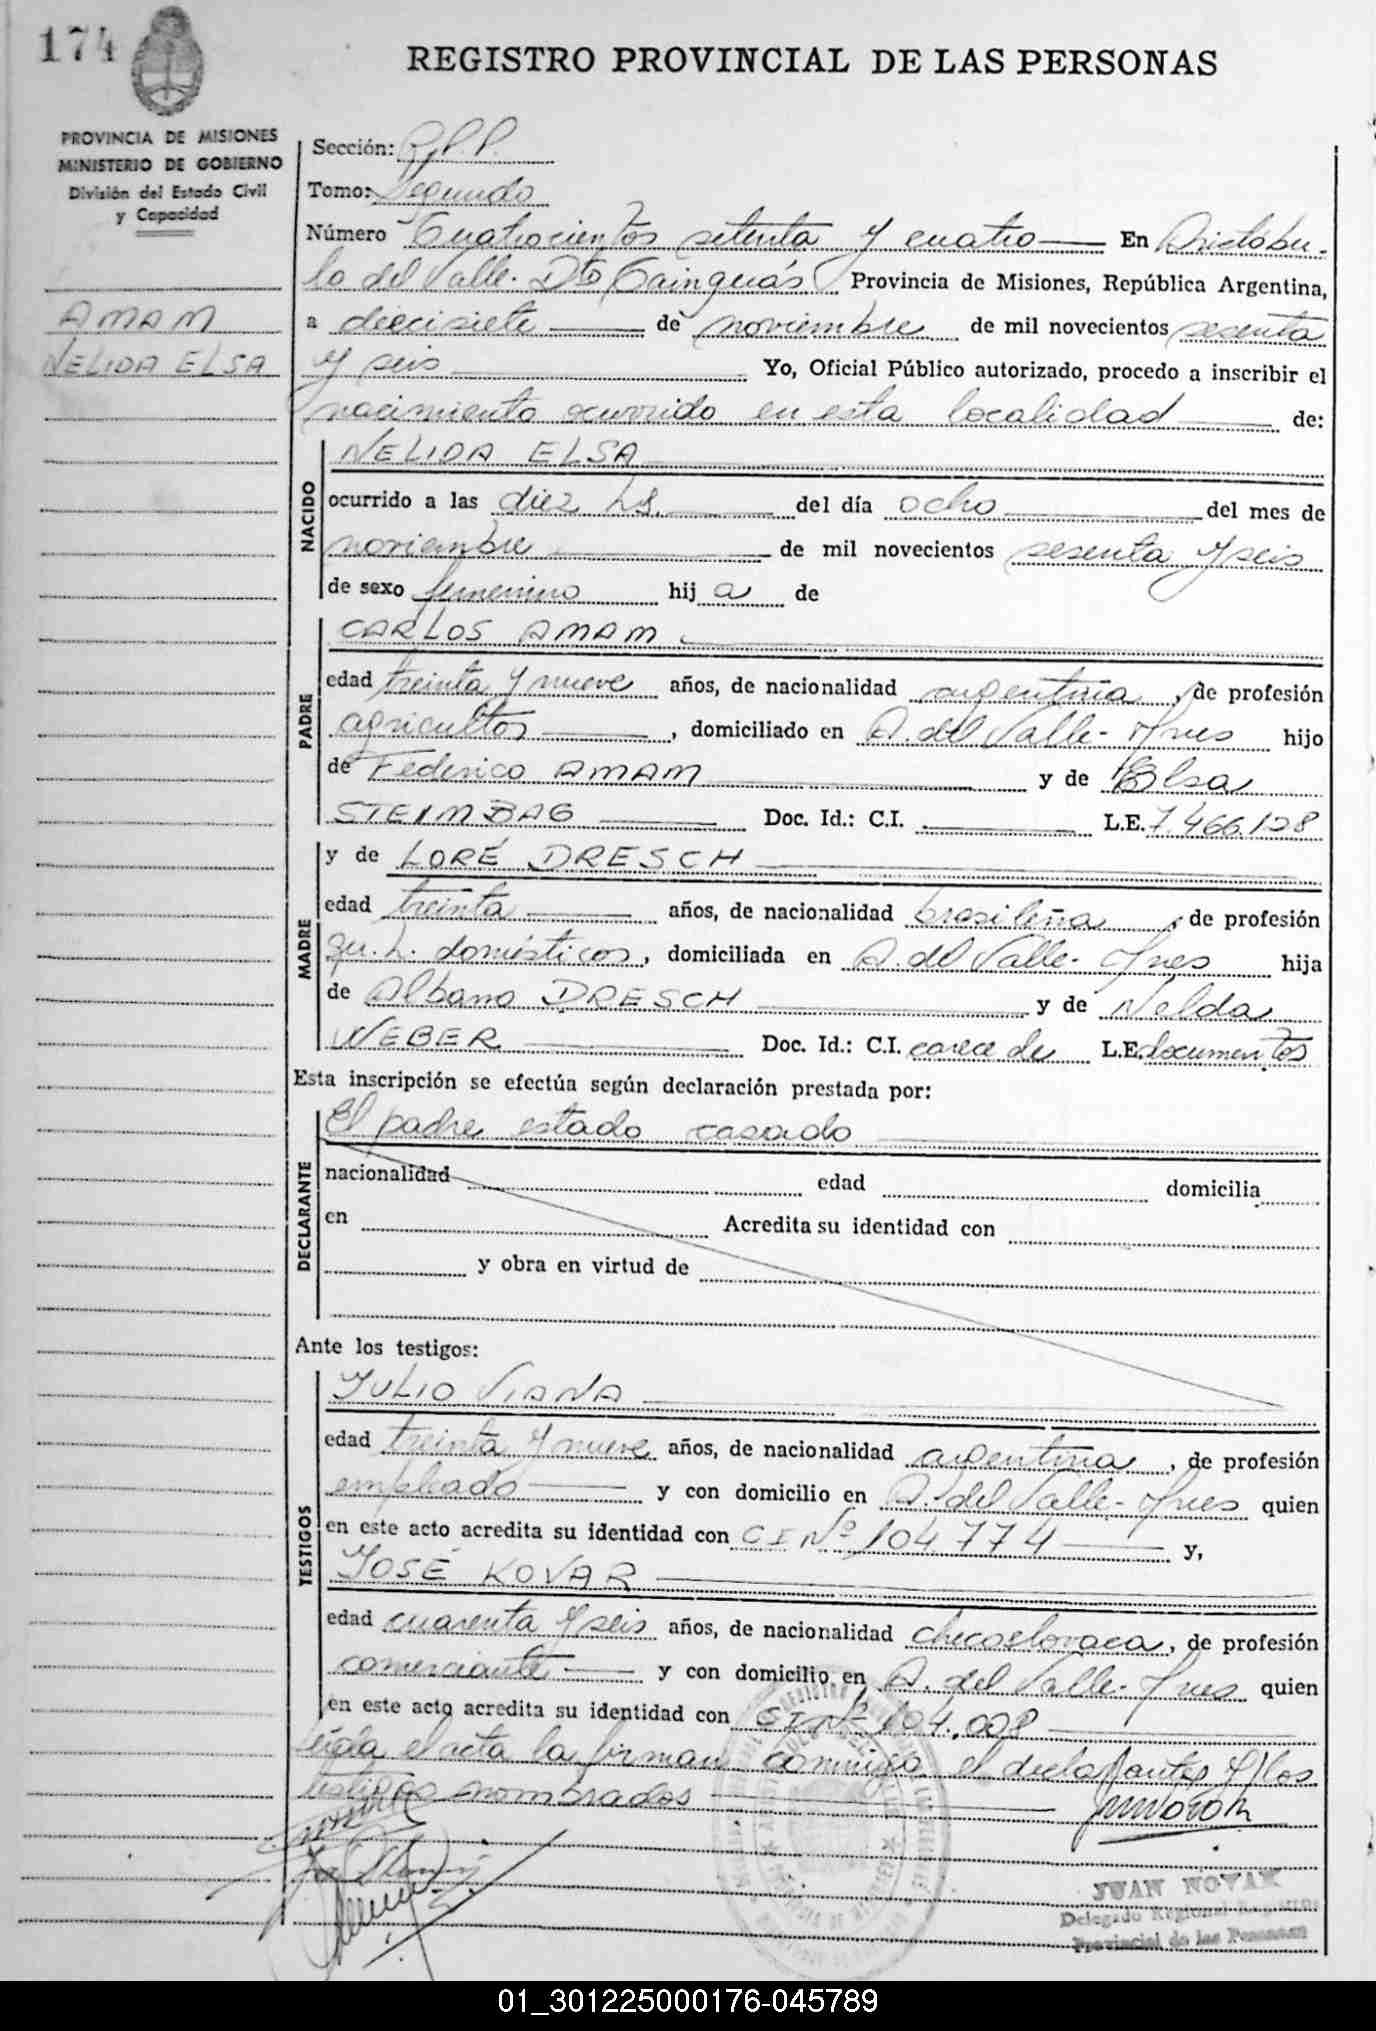 174
REGISTRO PROVINCIAL DE LAS PERSONAS
PROVINCIA DE MISIONES
MINISTERIO DE GOBIERNO
División del Estado Civil
y Capacidad
AMAM
NELIDA ELSA
Sección: R.P.P.
Tomo: Segundo
Número Cuatrocientos setenta y cuatro En Aristóbu-
lo del Valle. Dto Cainguás Provincia de Misiones, República Argentina,
a diecisiete de noviembre de mil novecientos sesenta
y seis Yo, Oficial Público autorizado, procedo a inscribir el
nacimiento ocurrido en esta localidad de:
NACIDO
NELIDA ELSA
ocurrido a las diez hs. del día ocho del mes de
noviembre de mil novecientos sesenta y seis
de sexo femenino hij a de
PADRE
CARLOS AMAM
edad treinta y nueve años, de nacionalidad argentina, de profesión
agricultor, domiciliado en A. del Valle- Mnes hijo
de Federico AMAM y de Elsa
STEIMBAG Doc. Id.: C.I. L.E. 7.466.128
MADRE
y de LORÉ DRESCH
edad treinta años, de nacionalidad brasileña, de profesión
qu. h. domésticos, domiciliada en A. del Valle- Mnes hija
de Albano DRESCH y de Nelda
WEBER Doc. Id.: C.I. carece de L.E. documentos
Esta inscripción se efectúa según declaración prestada por:
DECLARANTE
El padre estado casado
nacionalidad edad domicilia
en Acredita su identidad con
y obra en virtud de
Ante los testigos:
TESTIGOS
JULIO VIANA
edad treinta y nueve años, de nacionalidad argentina, de profesión
empleado y con domicilio en A. del Valle- Mnes quien
en este acto acredita su identidad con CI Nº 104.774 y,
JOSÉ KOVAR
edad cuarenta y seis años, de nacionalidad checoslovaca, de profesión
comerciante y con domicilio en A. del Valle- Mnes quien
en este acto acredita su identidad con CI Nº 104.008
Leída el acta la firman conmigo el declarante y los
testigos nombrados
JUAN NOVAK
Delegado Regional Registro
Provincial de las Personas
01_301225000176-045789